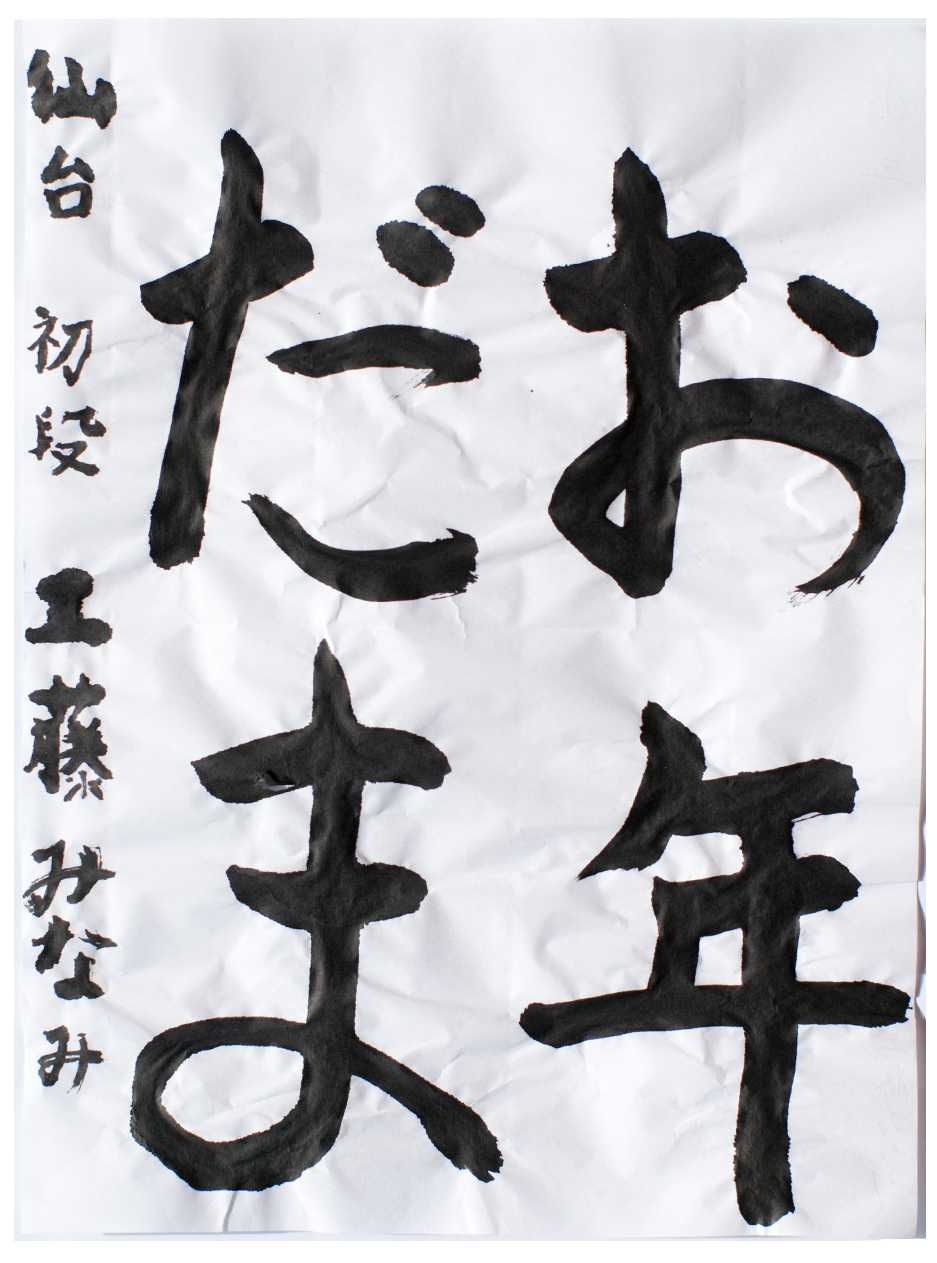 お年
だま
仙台 初段 工藤みなみ